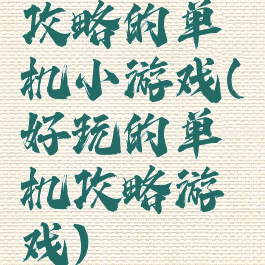 攻略的单
机小游戏(
好玩的单
机攻略游
戏)